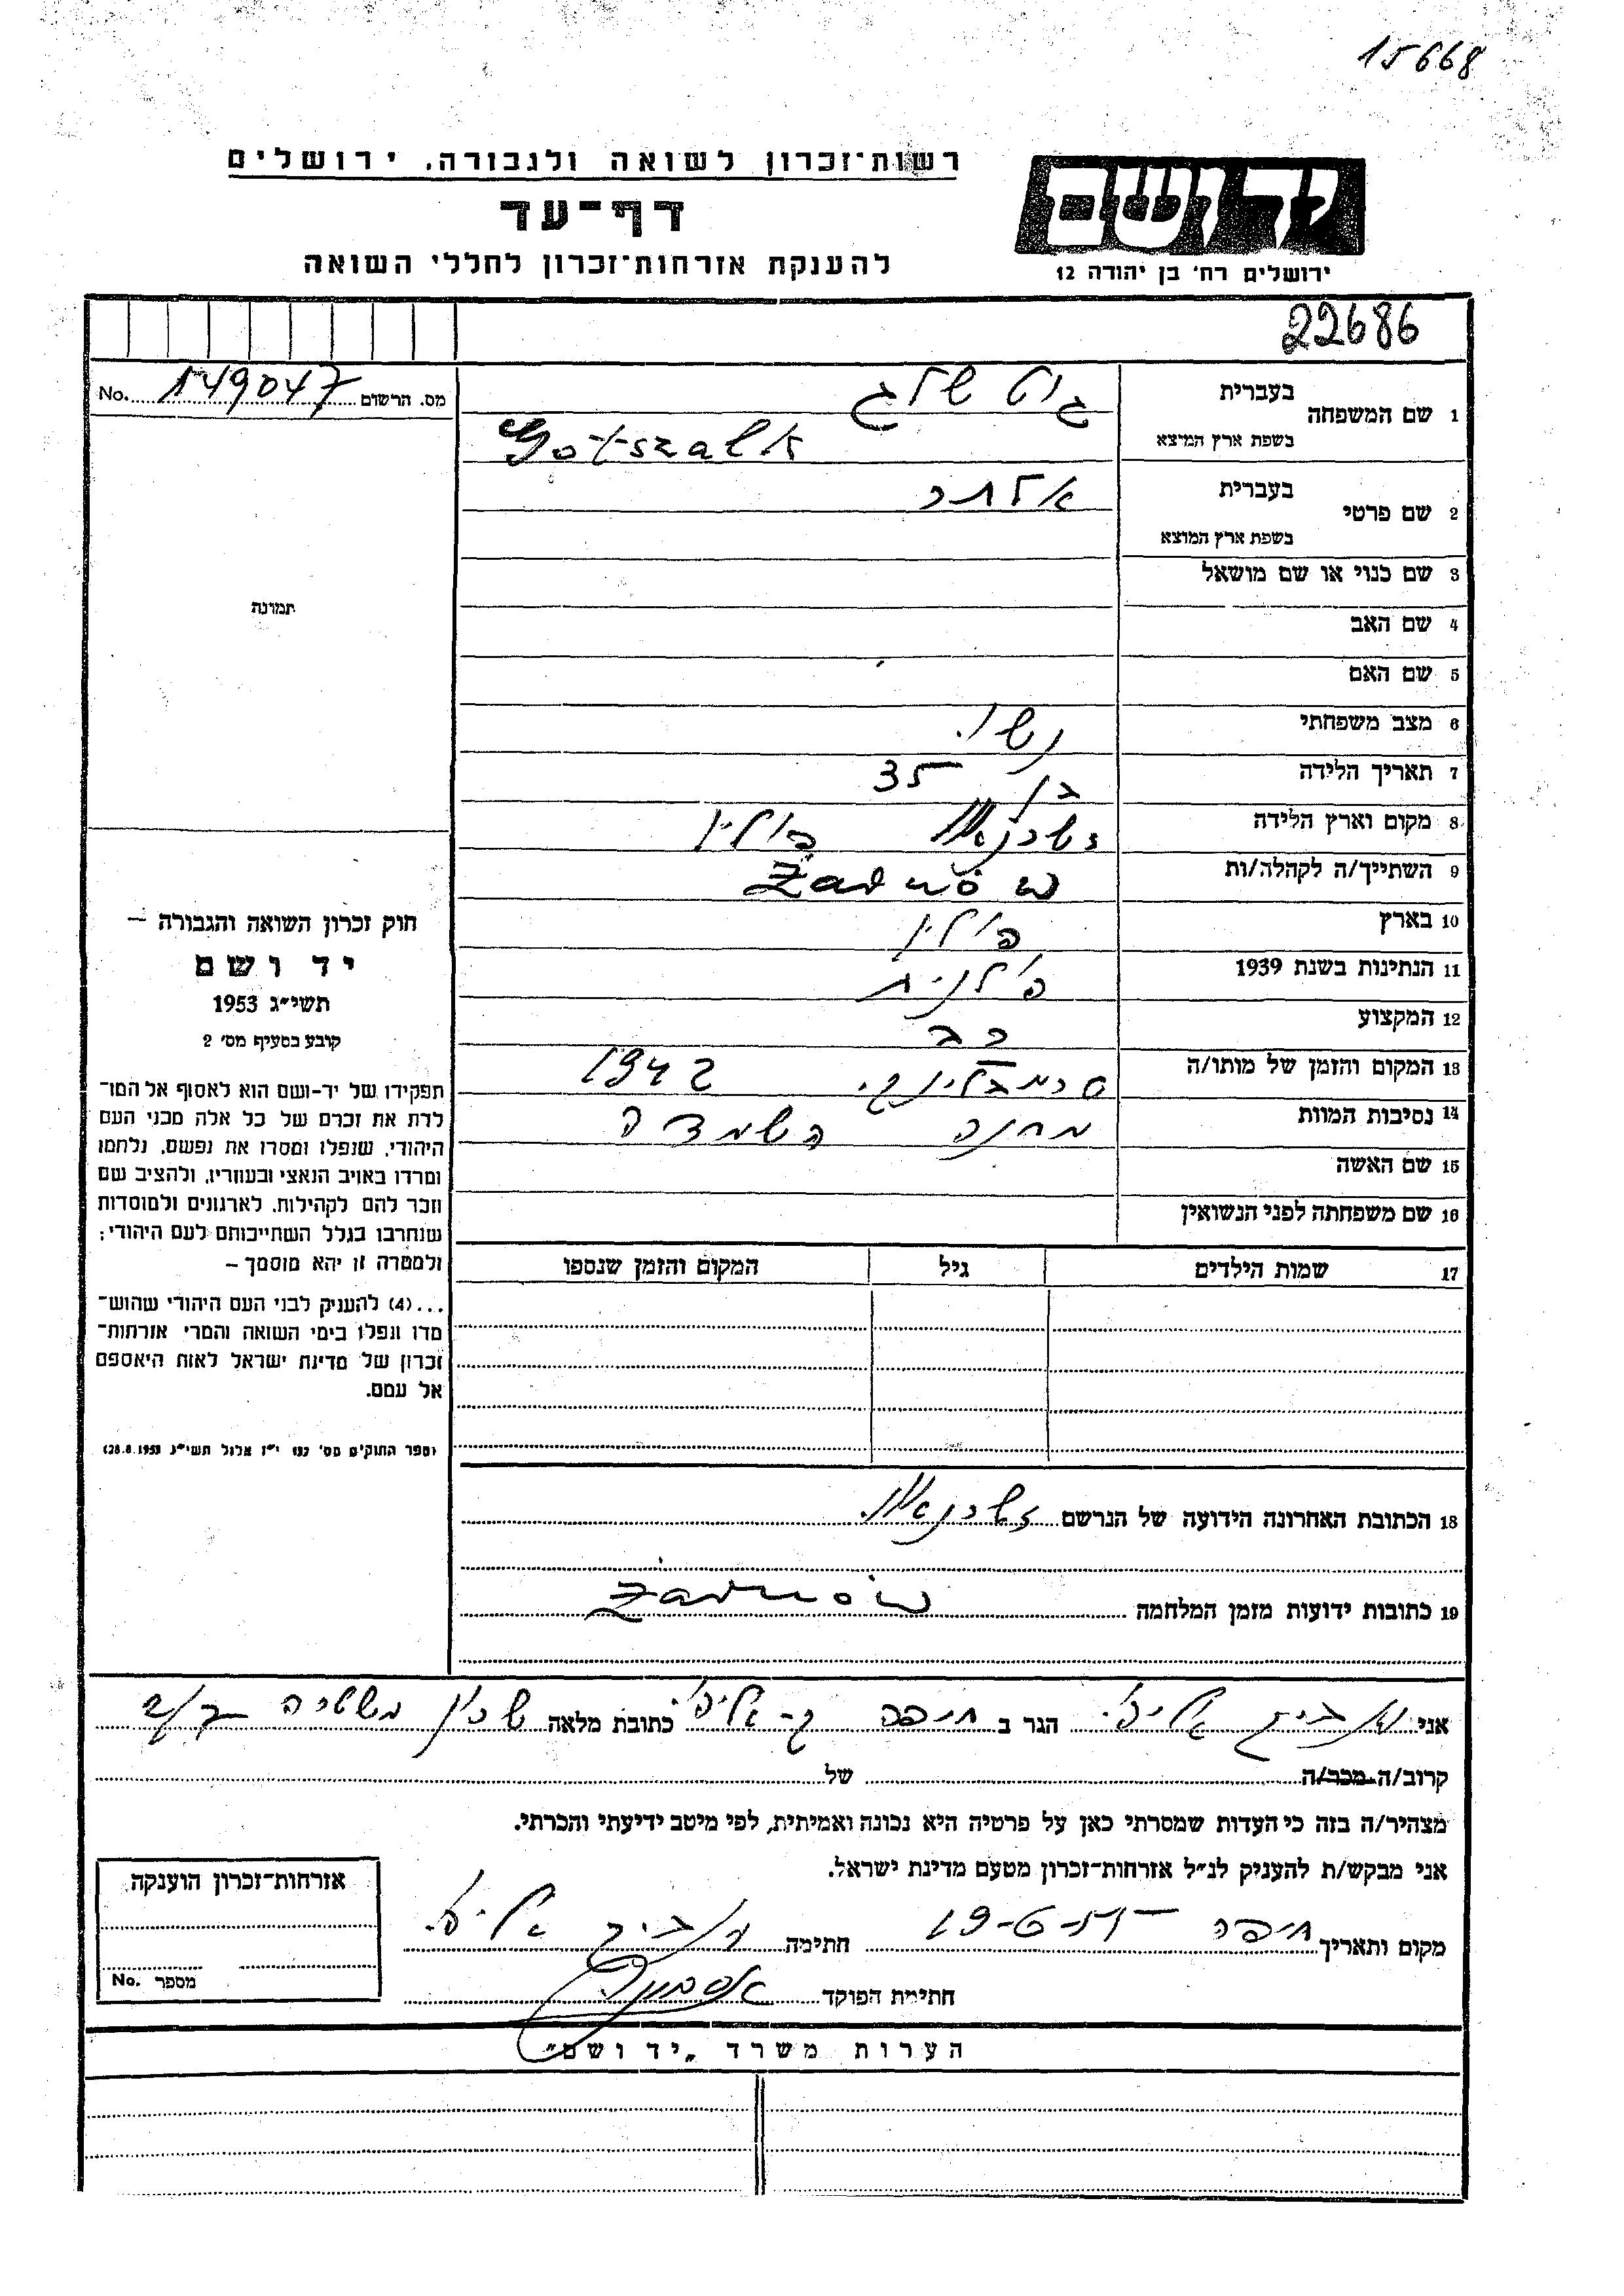 15668
רשות־זכרון לשואה ולגבורה, ירושלים
ידושם
דף־עד
להענקת אזרחות־זכרון לחללי השואה
ירושלים רח' בן יהודה 12
22686
מס. הרשום 149047 No.
1 שם המשפחה בעברית
בשפת ארץ המוצא Gotszalk
2 שם פרטי בעברית
בשפת ארץ המוצא
3 שם כנוי או שם מושאל
תמונה
4 שם האב
5 שם האם
6 מצב משפחתי נשוי
7 תאריך הלידה בן 35
8 מקום וארץ הלידה פולין
9 השתייך/ה לקהלה/ות Żarnów
10 בארץ פולין
11 הנתינות בשנת 1939 פולנית
12 המקצוע רב
13 המקום והזמן של מותו/ה 1942
14 נסיבות המוות מחנה השמדה
15 שם האשה
16 שם משפחתה לפני הנשואין
17 שמות הילדים גיל המקום והזמן שנספו
חוק זכרון השואה והגבורה –
יד ושם
תשי״ג 1953
קובע בסעיף מס' 2
תפקידו של יד־ושם הוא לאסוף אל המו־
לדת את זכרם של כל אלה מבני העם
היהודי, שנפלו ומסרו את נפשם, נלחמו
ומרדו באויב הנאצי ובעוזריו, ולהציב שם
וזכר להם לקהילות, לארגונים ולמוסדות
שנחרבו בגלל השתייכותם לעם היהודי;
ולמטרה זו יהא מוסמך –
...(4) להעניק לבני העם היהודי שהוש־
מדו ונפלו בימי השואה והמרי אזרחות־
זכרון של מדינת ישראל לאות היאספם
אל עמם.
(ספר החוקים מס' 132 י״ז אלול תשי״ג 28.8.1953)
18 הכתובת האחרונה הידועה של הנרשם
19 כתובות ידועות מזמן המלחמה Żarnów
אני הגר ב חיפה כתובת מלאה שכון
קרוב/ה מכר/ה של
מצהיר/ה בזה כי העדות שמסרתי כאן על פרטיה היא נכונה ואמיתית, לפי מיטב ידיעתי והכרתי.
אני מבקש/ת להעניק לנ״ל אזרחות־זכרון מטעם מדינת ישראל.
מקום ותאריך חיפה חתימה
חתימת הפוקד
אזרחות־זכרון הוענקה
מספר No.
הערות משרד „יד ושם״